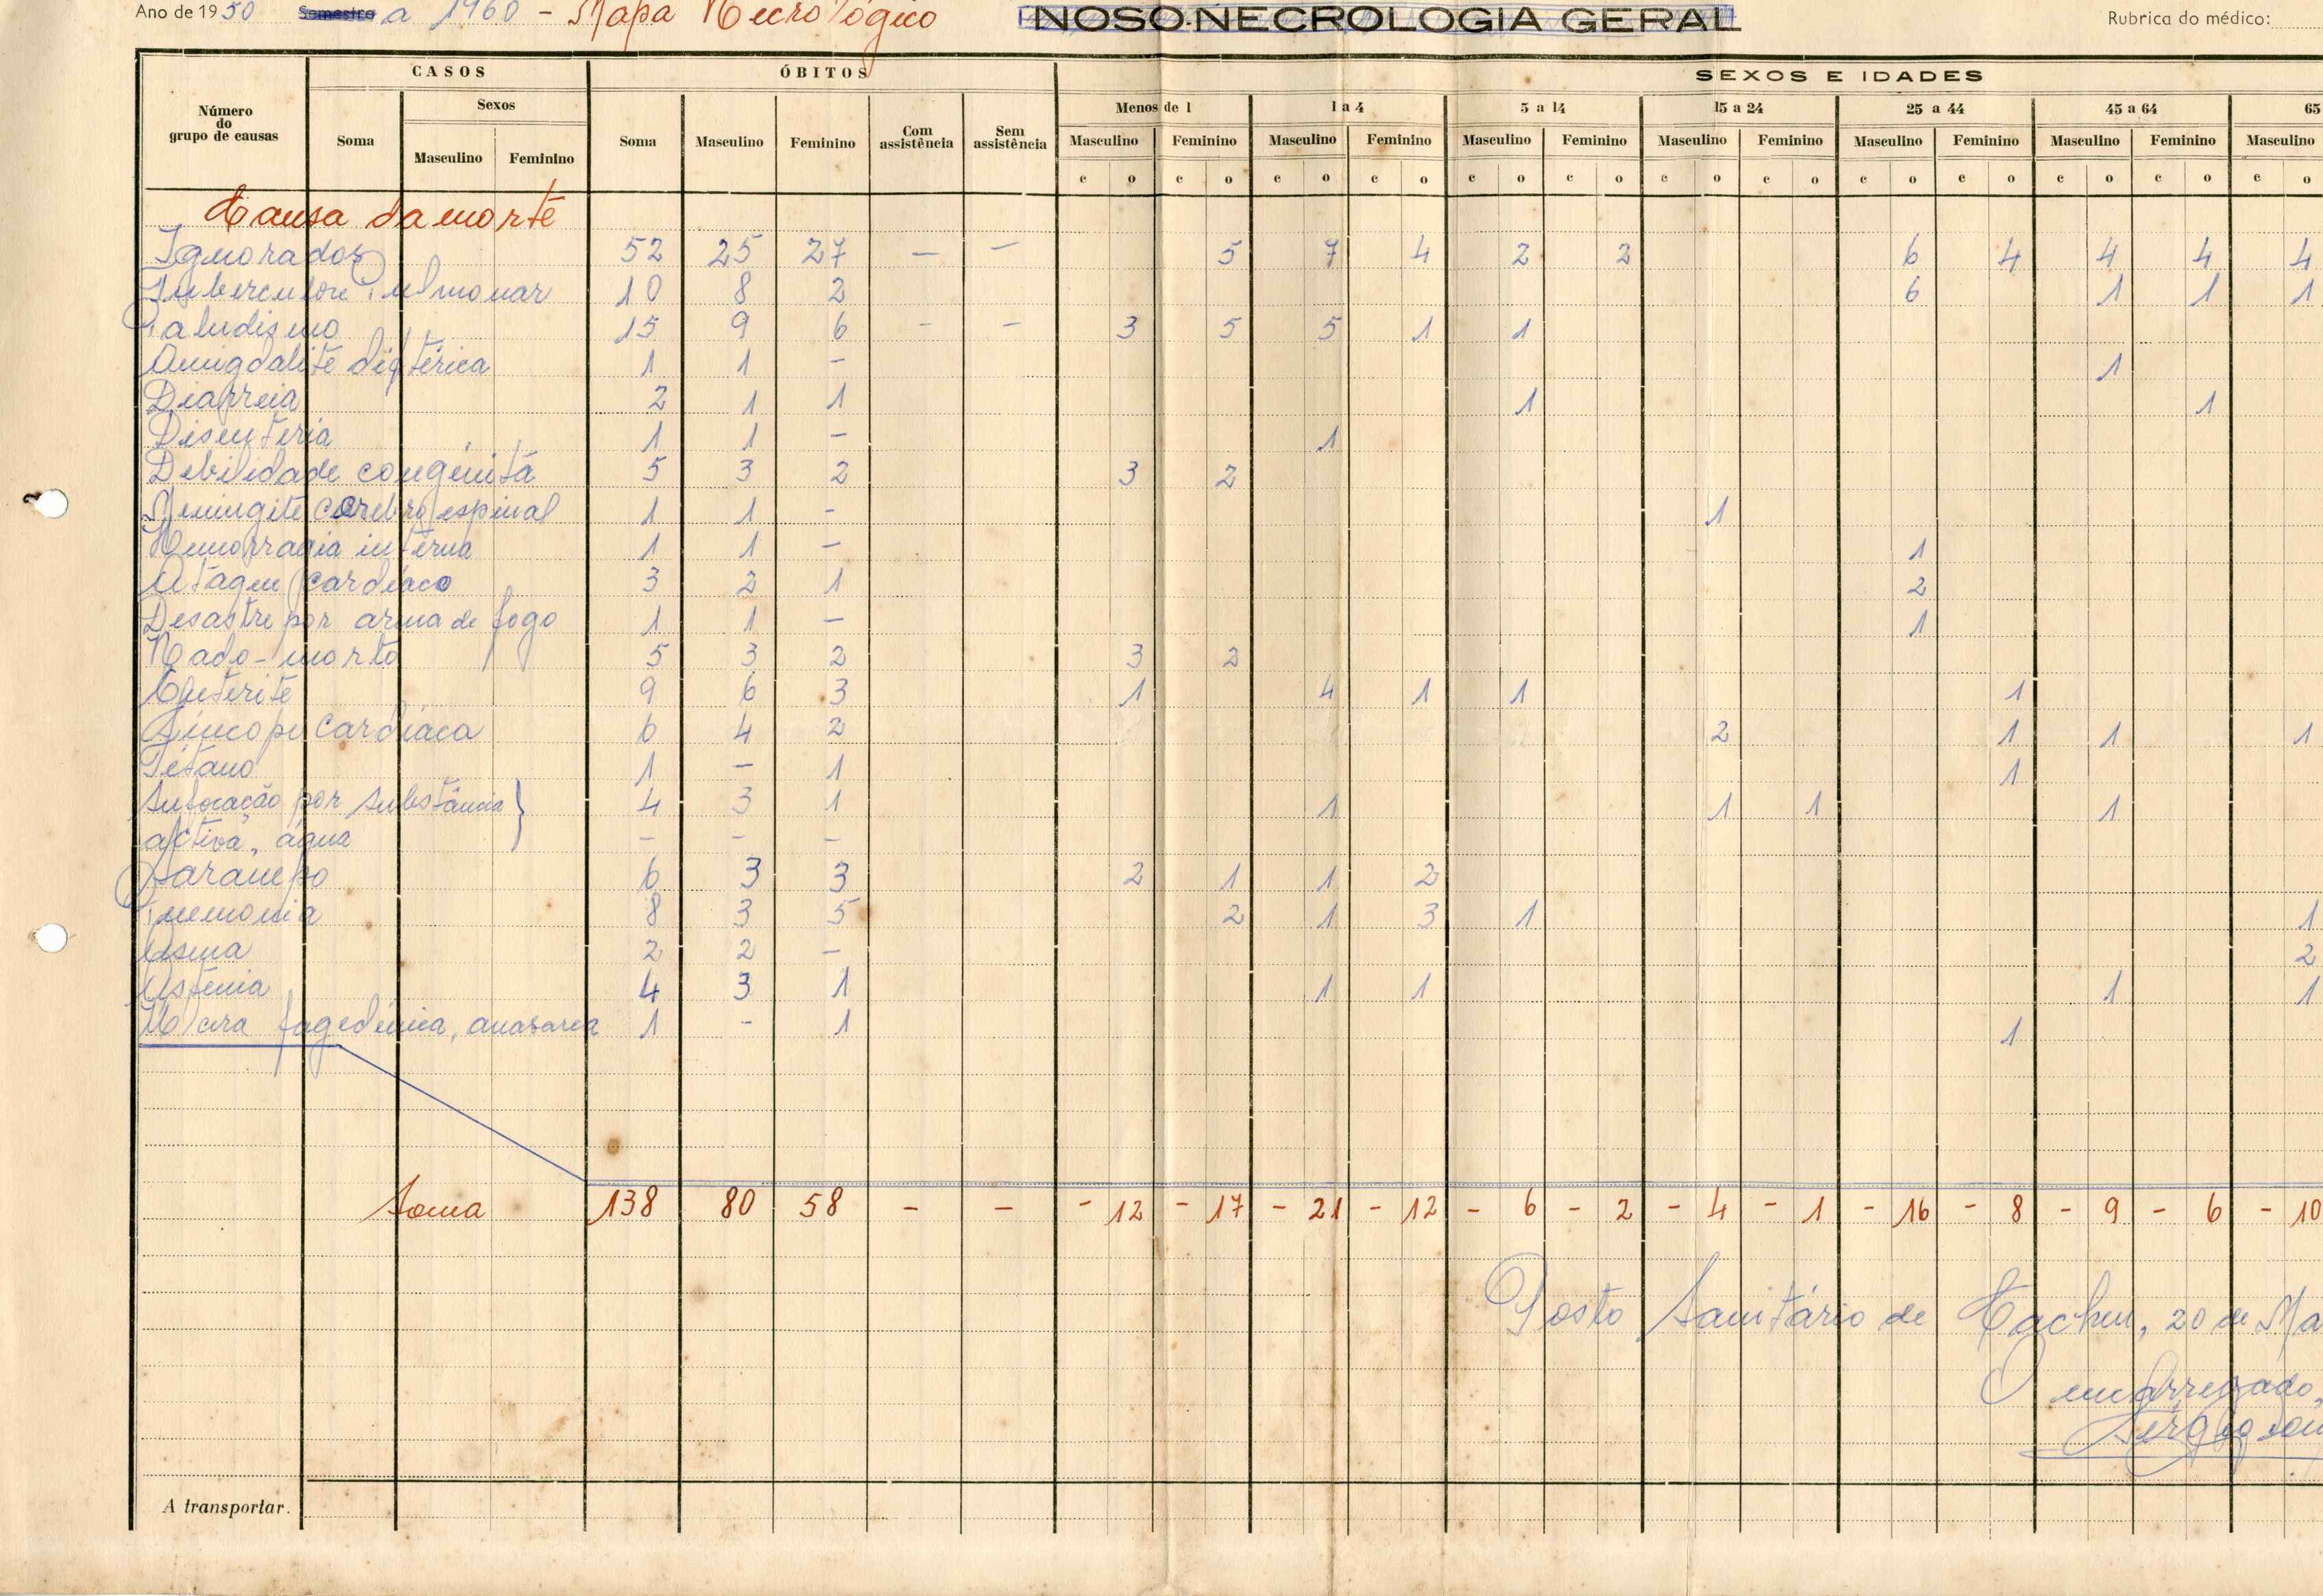 Ano de 1950 Semestre a 1960 - Mapa Necrológico NOSO-NECROLOGIA GERAL Rubrica do médico:
CASOS ÓBITOS SEXOS E IDADES
Número do grupo de causas Soma Sexos Soma Masculino Feminino Com assistência Sem assistência Menos de 1 1 a 4 5 a 14 15 a 24 25 a 44 45 a 64 65
Masculino Feminino Masculino Feminino Masculino Feminino Masculino Feminino Masculino Feminino Masculino Feminino Masculino Feminino Masculino Feminino Masculino
c o c o c o c o c o c o c o c o c o c o c o c o c o
Causa da morte
Ignorados 52 25 27 — — 5 7 4 2 2 6 4 4 4 4
Tuberculose Pulmonar 10 8 2 6 1 1 1
Paludismo 15 9 6 - - 3 5 5 1 1
Amigdalite diftérica 1 1 - 1
Diarreia 2 1 1 1 1
Disenteria 1 1 - 1
Debilidade congénita 5 3 2 3 2
Meningite cerebro espinal 1 1 - 1
Hemorragia interna 1 1 - 1
Ataque cardíaco 3 2 1 2
Desastre por arma de fogo 1 1 - 1
Nado-morto 5 3 2 3 2
Enterite 9 6 3 1 4 1 1 1
Síncope cardíaca 6 4 2 2 1 1 1
Tétano 1 - 1 1
Sufocação por substância } 4 3 1 1 1 1 1
activa, água - - -
Sarampo 6 3 3 2 1 1 2
Pneumonia 8 3 5 2 1 3 1 1
Asma 2 2 - 2
Astenia 4 3 1 1 1 1 1
Úlcera fagedénica, anasarca 1 - 1 1
Soma 138 80 58 - - - 12 - 17 - 21 - 12 - 6 - 2 - 4 - 1 - 16 - 8 - 9 - 6 - 10
Posto Sanitário de Cacheu, 20 de Ma
O encarregado,
Sérgio
A transportar.